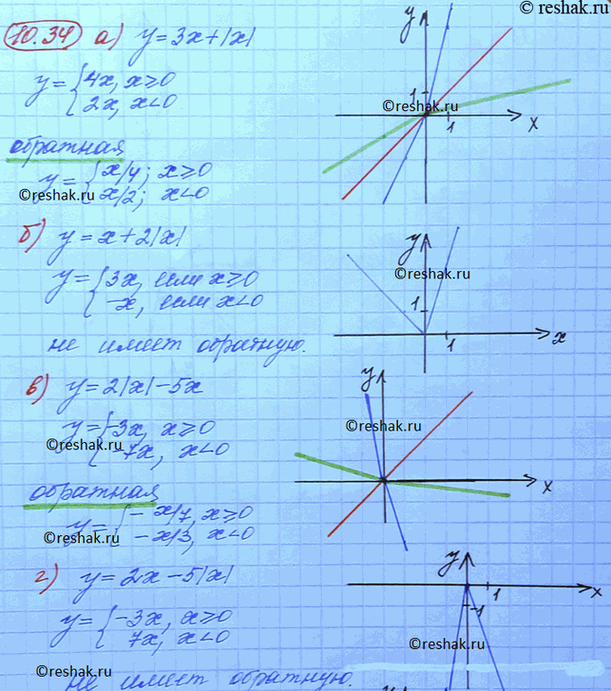 © reshak.ru
10.34 а) y = 3x + |x|
y = { 4x, x ≥ 0
2x, x < 0
обратная
y = { x/4; x ≥ 0
x/2; x < 0
©reshak.ru
y
1
©reshak.ru
1
x
б) y = x + 2|x|
y = { 3x, если x ≥ 0
-x, если x < 0
не имеет обратную.
y
©reshak.ru
1
1
x
в) y = 2|x| - 5x
y = { -3x, x ≥ 0
-7x, x < 0
©reshak.ru
обратная
y = { - x/7, x ≥ 0
- x/3, x < 0
©reshak.ru
y
©reshak.ru
x
г) y = 2x - 5|x|
y = { -3x, x ≥ 0
7x, x < 0
©reshak.ru
не имеет обратную.
y
1
x
-1
©reshak.ru